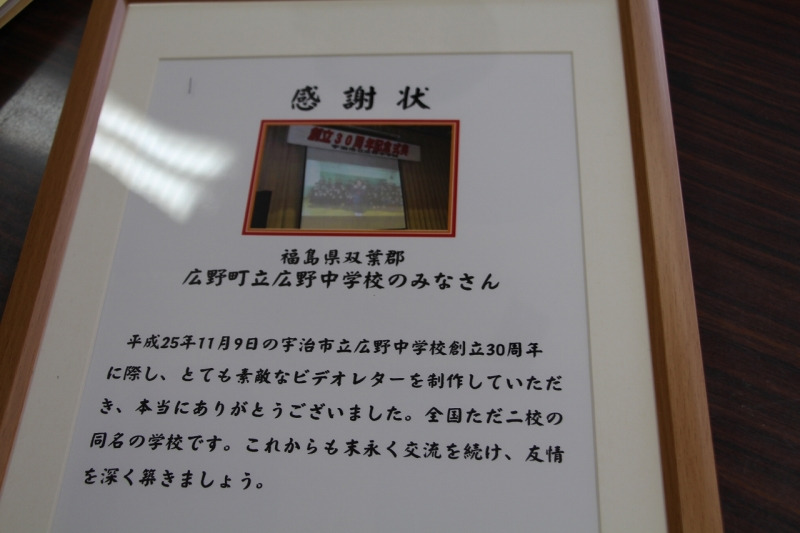 感謝状
創立30周年記念式典
福島県双葉郡
広野町立広野中学校のみなさん
平成25年11月9日の宇治市立広野中学校創立30周年
に際し、とても素敵なビデオレターを制作していただ
き、本当にありがとうございました。全国ただ二校の
同名の学校です。これからも末永く交流を続け、友情
を深く築きましょう。